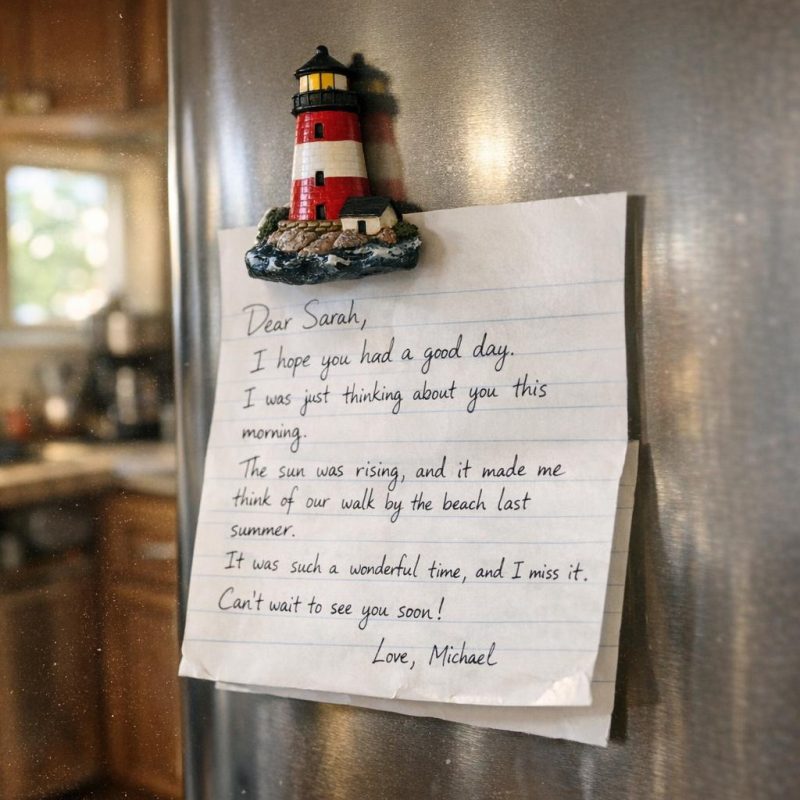 Dear Sarah,
I hope you had a good day.
I was just thinking about you this
morning.
The sun was rising, and it made me
think of our walk by the beach last
summer.
It was such a wonderful time, and I miss it.
Can't wait to see you soon!
Love, Michael